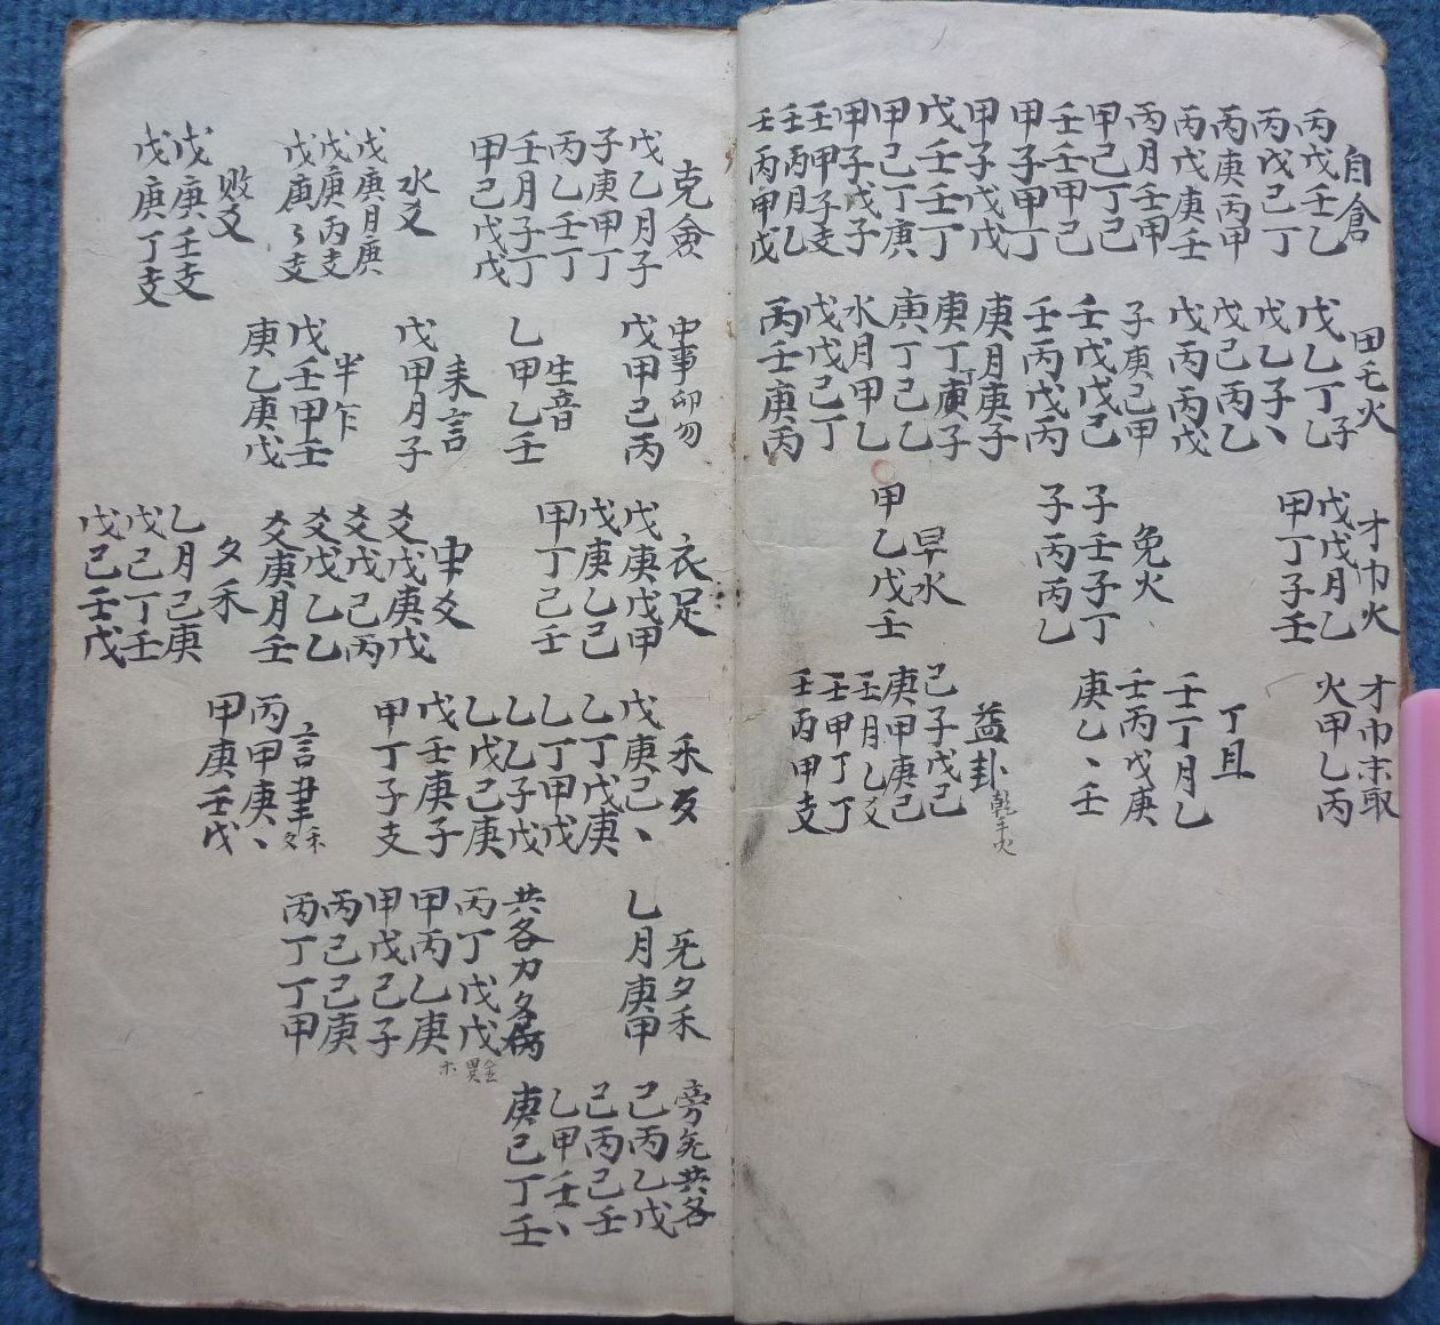 自倉
丙戊壬乙
丙戊己丁
丙庚丙甲
丙戊庚壬
丙月壬甲
甲己丁己
壬壬甲己
甲子甲丁
甲子戊戊
戊壬壬丁
甲己丁庚
甲子戊子
壬甲子支
壬丙月乙
壬丙甲戊
田毛火
戊乙丁子乙
戊乙子、
戊己丙乙
戊丙丙戊
子庚己甲
壬戊戊己
壬丙戊丙
庚月庚子
庚丁庚子
庚丁己乙
水月甲乙
戊戊己丁
丙壬庚丙
才巾火
戊戊月乙
甲丁子壬
免火
子壬子丁
子丙丙乙
早水
甲乙戊壬
才巾末取
火甲乙丙
丁且
壬丁月乙
壬丙戊庚
庚乙、壬
益卦
己子戊己
庚甲庚己
壬月乙爻
壬甲丁丁
壬丙甲支
克僉
戊乙月子
子庚甲丁
丙乙壬丁
壬月子丁
甲己戊戊
水爻
戊庚月庚
戊庚丙支
戊庚了支
败爻
戊庚壬支
戊庚丁支
中事卯勿
戊甲己丙
生音
乙甲乙壬
耒言
戊甲月子
半乍
戊壬甲壬
庚乙庚戊
衣足
戊庚戊甲
戊庚乙己
甲丁己壬
中爻
爻戊庚戊
爻戊己丙
爻戊乙乙
爻庚月壬
夕禾
乙月己庚
戊己丁壬
戊己壬戊
禾
戊庚己、
乙丁戊庚
乙丁甲戊
乙乙子戊
乙戊己庚
戊壬庚子
甲丁子支
言聿
禾
丙甲庚、
甲庚壬戊
旡夕禾
乙月庚甲
共各力
丙丁戊戊
甲丙乙庚
甲戊己子
丙己己庚
丙丁丁甲
旁旡共各
己丙乙戊
己丙己壬
乙甲壬、
庚己丁壬